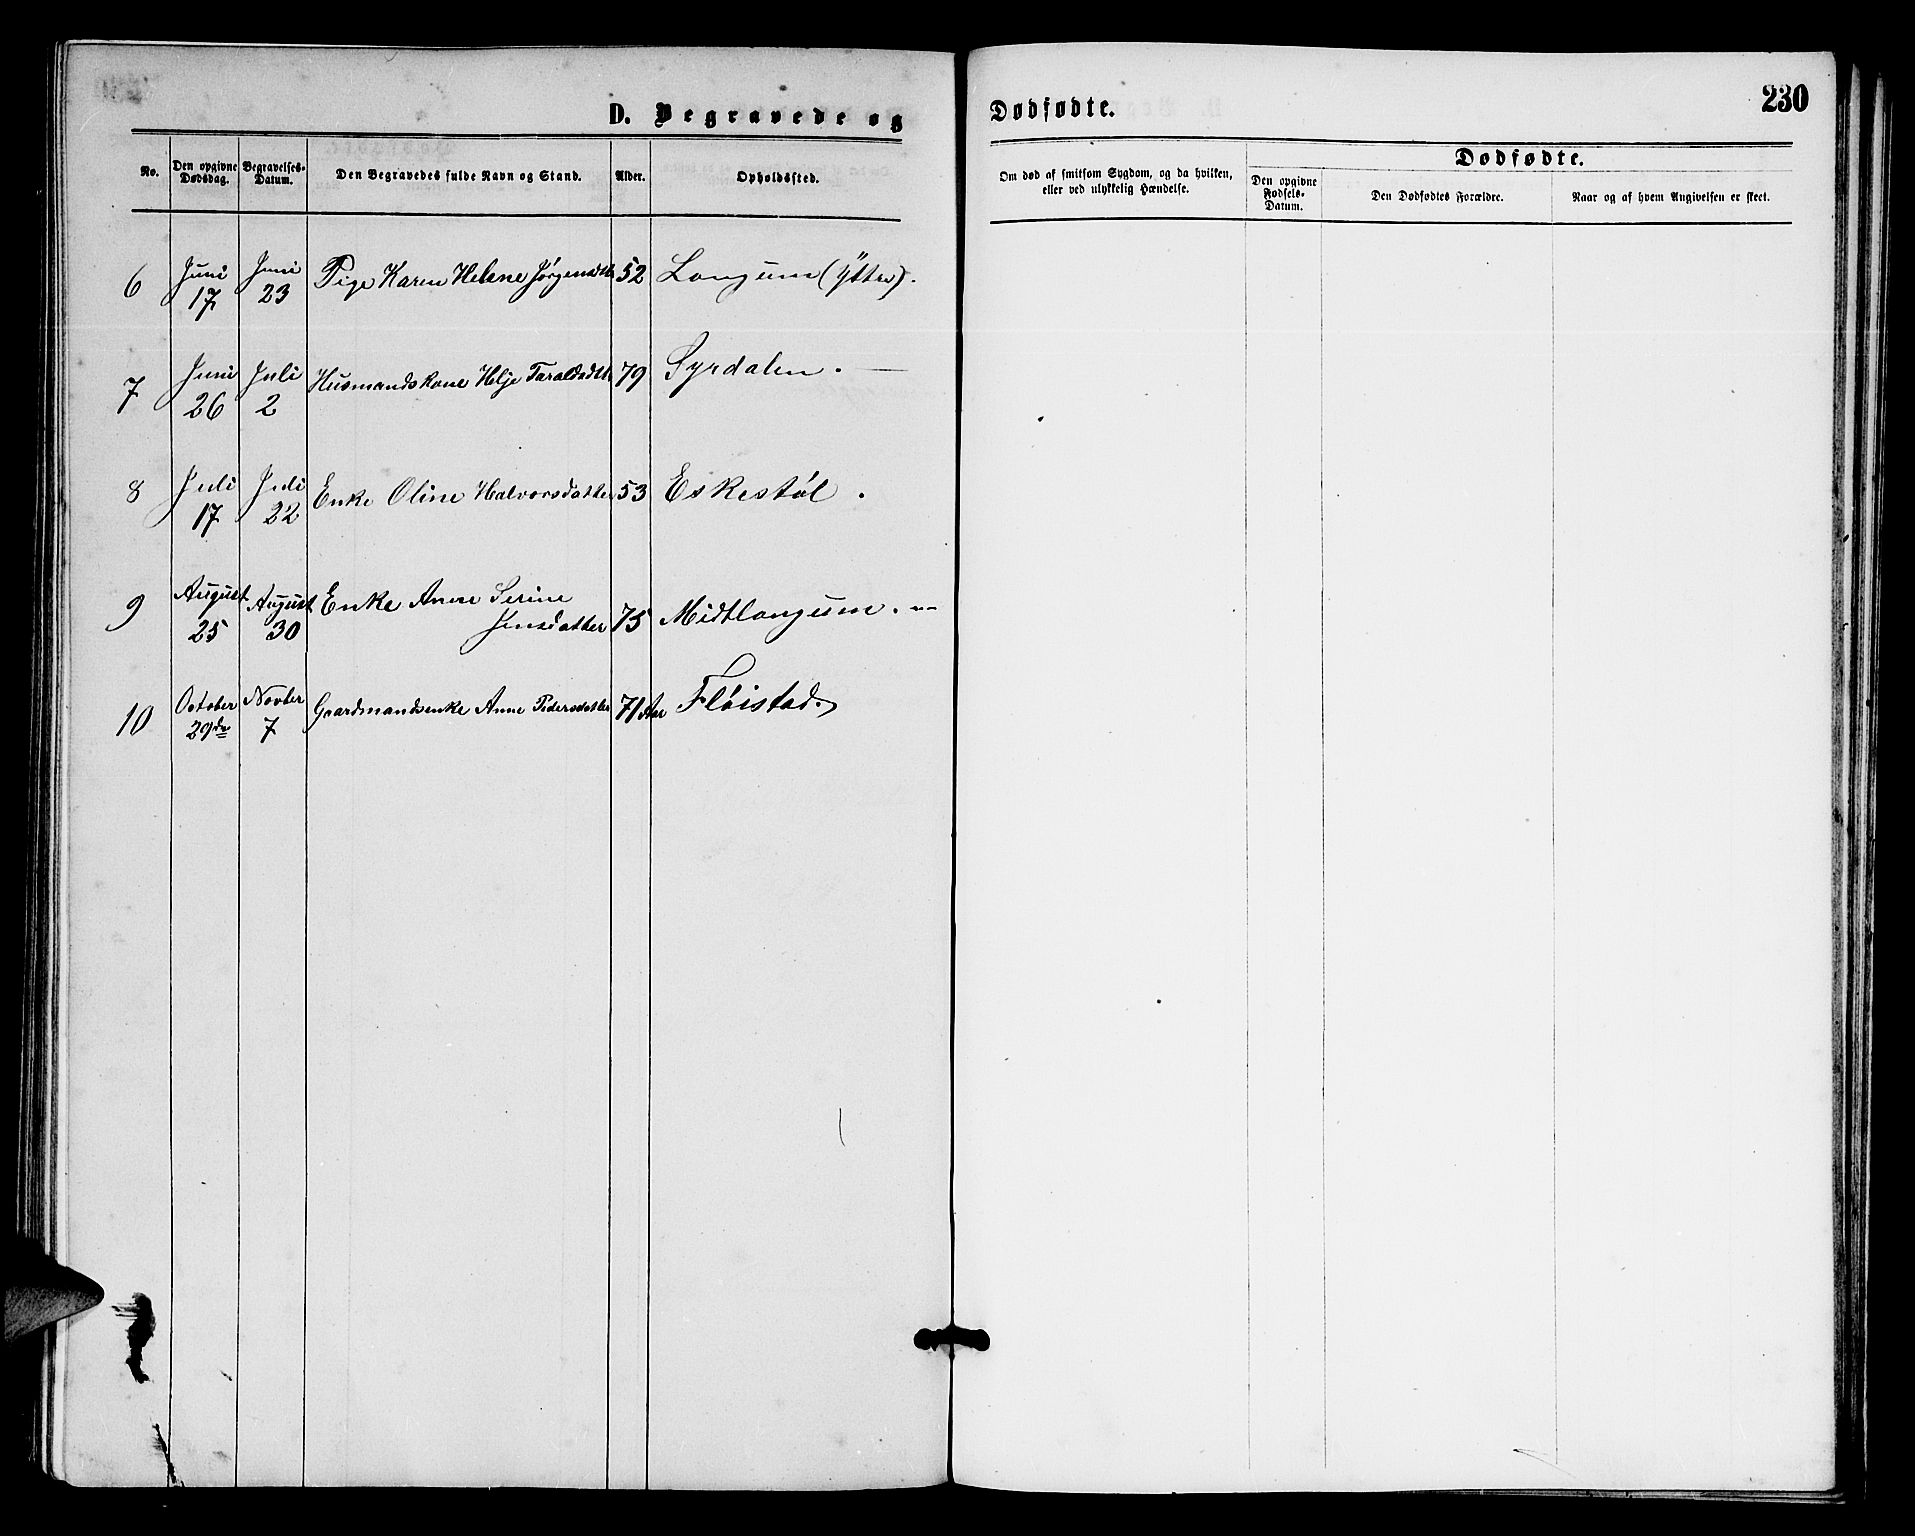 D. Begravede og
Dødfødte.
230
No.
Den opgivne Dødsdag.
Begravelses-Datum.
Den Begravedes fulde Navn og Stand.
Alder.
Opholdssted.
Om død af smitsom Sygdom, og da hvilken, eller ved ulykkelig Hændelse.
Dødfødte.
Den opgivne Fødsels-Datum.
Den Dødfødtes Forældre.
Naar og af hvem Angivelsen er skeet.
6 Juni 17 Juni 23 Pige Karen Helene Jørgensdtr 52 Longum (Yttre).
7 Juni 26 Juli 2 Husmandskone Helje Taraldsdtr 79 Syrdalen. —
8 Juli 17 Juli 22 Enke Oline Halvorsdatter 53 Eskestøl.
9 August 25 August 30 Enke Anne Serine
Jensdatter 75 Midtlongum. —
10 October 29de Novber 7 Gaardmandsenke Anne Pedersdatter 71 Aar Fløistad.